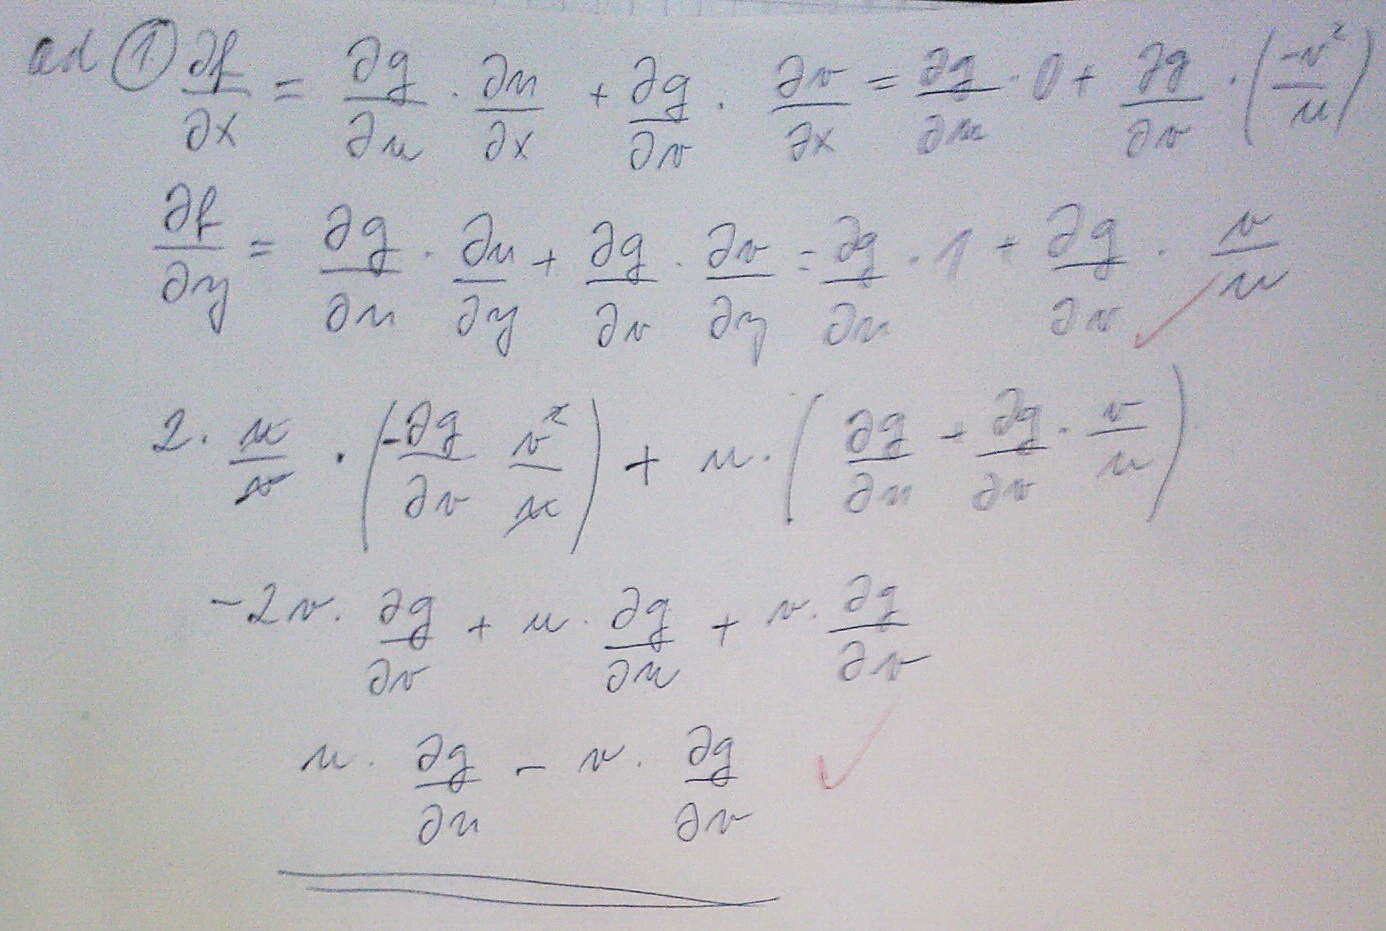 ad ① ∂f/∂x = ∂g/∂u · ∂u/∂x + ∂g/∂v · ∂v/∂x = ∂g/∂u · 0 + ∂g/∂v · (-v²/u)
∂f/∂y = ∂g/∂u · ∂u/∂y + ∂g/∂v · ∂v/∂y = ∂g/∂u · 1 + ∂g/∂v · v/u
2 · u/v · (-∂g/∂v v²/u) + u · (∂g/∂u + ∂g/∂v · v/u)
-2v · ∂g/∂v + u · ∂g/∂u + v · ∂g/∂v
u · ∂g/∂u - v · ∂g/∂v